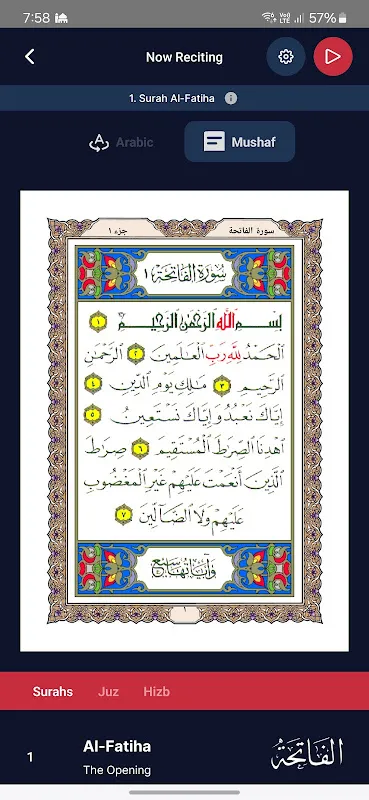 7:58
57%
Now Reciting
1. Surah Al-Fatiha
Arabic
Mushaf
سورة الفاتحة
جزء ١
سُورَةُ الْفَاتِحَةِ ١
بِسْمِ اللَّهِ الرَّحْمَٰنِ الرَّحِيمِ ١
الْحَمْدُ لِلَّهِ رَبِّ الْعَالَمِينَ ٢ الرَّحْمَٰنِ
الرَّحِيمِ ٣ مَالِكِ يَوْمِ الدِّينِ ٤
إِيَّاكَ نَعْبُدُ وَإِيَّاكَ نَسْتَعِينُ ٥
اهْدِنَا الصِّرَاطَ الْمُسْتَقِيمَ ٦ صِرَاطَ
الَّذِينَ أَنْعَمْتَ عَلَيْهِمْ غَيْرِ الْمَغْضُوبِ
عَلَيْهِمْ وَلَا الضَّالِّينَ ٧
وَآيَاتُهَا سَبْعٌ
١
Surahs
Juz
Hizb
1
Al-Fatiha
The Opening
الْفَاتِحَةُ